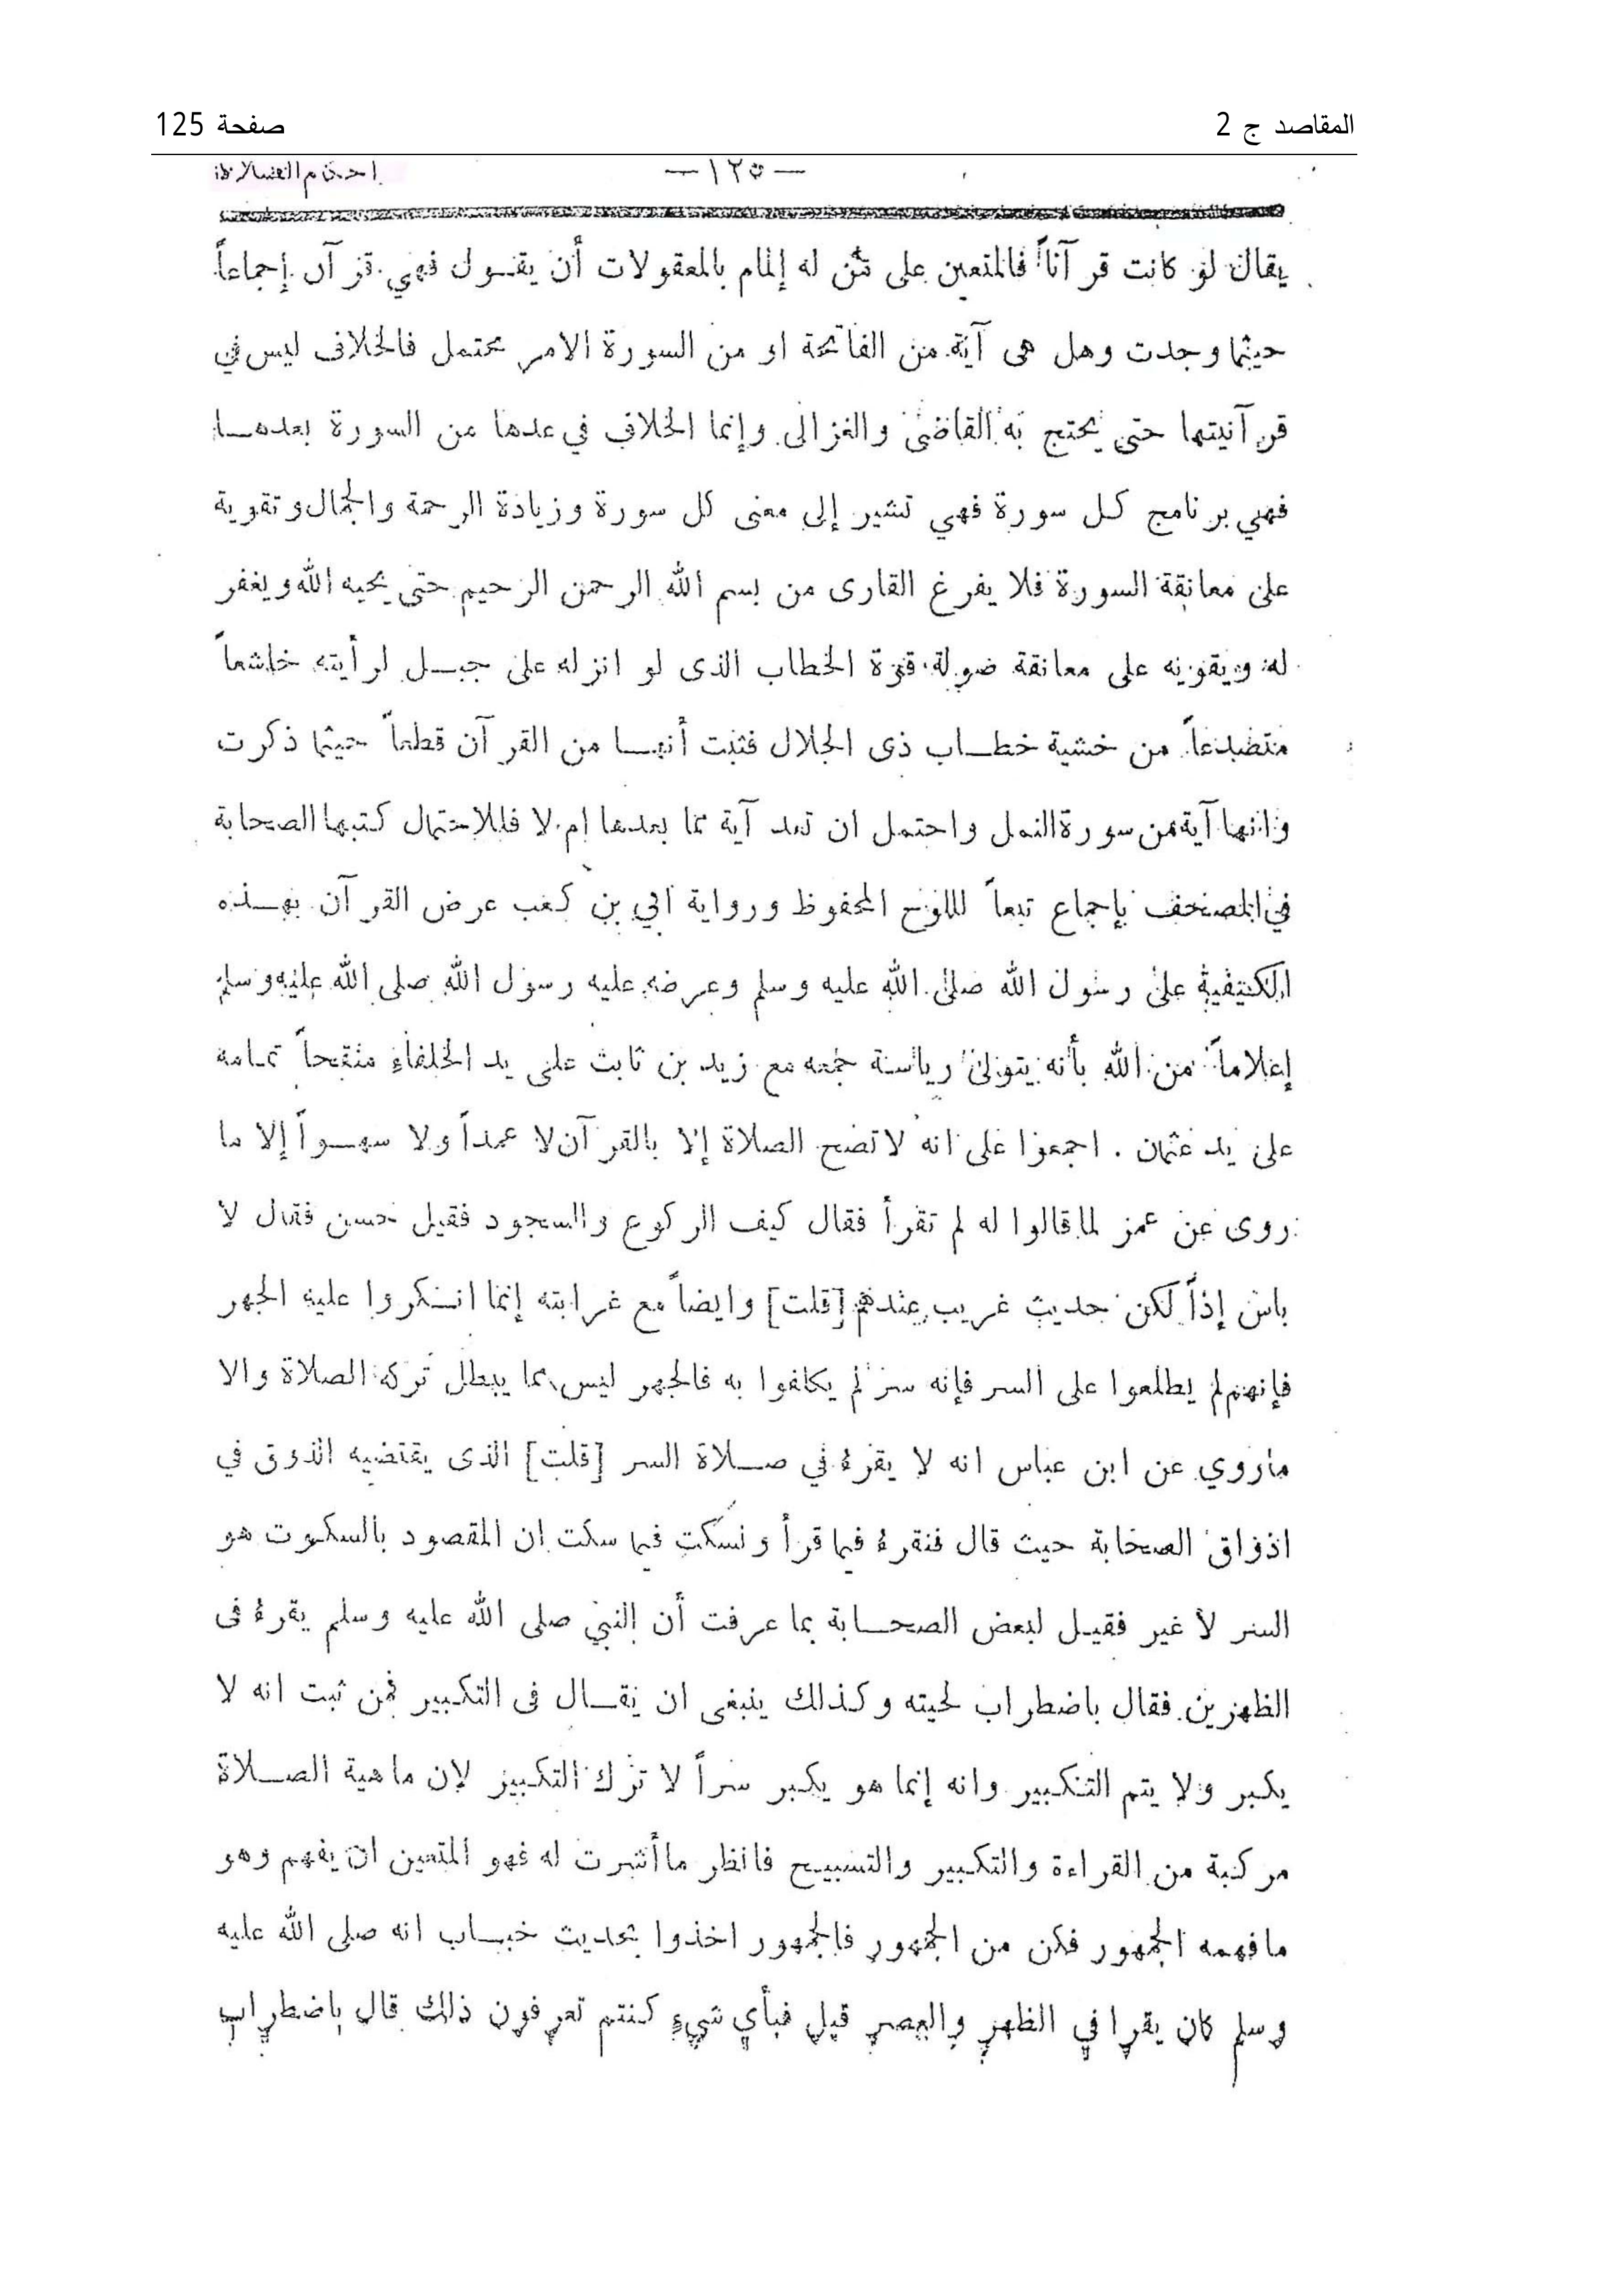 المقاصد ج 2
صفحة 125
— ١٢٥ —
احكام الصلاة
يقال لو كانت قرآناً فالمتعين على من له إلمام بالمعقولات أن يقول فهي قرآن إجماعاً
حيثما وجدت وهل هى آية من الفاتحة او من السورة الامر محتمل فالخلاف ليس في
قرآنيتها حتى يحتج به القاضى والغزالى وإنما الخلاف في عدها من السورة بعدها
فهي برنامج كل سورة فهي تشير إلى معنى كل سورة وزيادة الرحمة والجمال وتقوية
على معانقة السورة فلا يفرغ القارى من بسم الله الرحمن الرحيم حتى يحبه الله ويغفر
له ويقويه على معانقة صولة قوة الخطاب الذى لو انزله على جبل لرأيته خاشعاً
متصدعاً من خشية خطاب ذى الجلال فثبت أنها من القرآن قطعاً حيثما ذكرت
وانها آية من سورة النمل واحتمل ان تعد آية مما بعدها ام لا فللاحتمال كتبها الصحابة
في المصحف بإجماع تبعاً لللوح المحفوظ ورواية ابي بن كعب عرض القرآن بهذه
الكيفية على رسول الله صلى الله عليه وسلم وعرضه عليه رسول الله صلى الله عليه وسلم
إعلاماً من الله بأنه يتولى رياسة جمعه مع زيد بن ثابت على يد الخلفاء منقحاً تمامه
على يد عثمان . اجمعوا على انه لا تصح الصلاة إلا بالقرآن لا عمداً ولا سهواً إلا ما
روى عن عمر لما قالوا له لم تقرأ فقال كيف الركوع والسجود فقيل حسن فقال لا
باس إذاً لكن حديث غريب عندهم [قلت] وايضاً مع غرابته إنما انكروا عليه الجهر
فإنهم لم يطلعوا على السر فإنه سر لم يكلفوا به فالجهر ليس مما يبطل تركه الصلاة والا
ماروي عن ابن عباس انه لا يقرءُ في صلاة السر [قلت] الذى يقتضيه الذوق في
اذواق الصحابة حيث قال فنقرءُ فيما قرأ ونسكت فيما سكت ان المقصود بالسكوت هو
السر لا غير فقيل لبعض الصحابة بما عرفت أن النبي صلى الله عليه وسلم يقرءُ فى
الظهرين فقال باضطراب لحيته وكذلك ينبغى ان يقال فى التكبير فمن ثبت انه لا
يكبر ولا يتم التكبير وانه إنما هو يكبر سراً لا ترك التكبير لان ماهية الصلاة
مركبة من القراءة والتكبير والتسبيح فانظر ما أشرت له فهو المتعين ان يفهم وهو
ما فهمه الجمهور فكن من الجمهور فالجمهور اخذوا بحديث خباب انه صلى الله عليه
وسلم كان يقرا في الظهر والعصر قيل فبأي شيءٍ كنتم تعرفون ذلك قال باضطراب